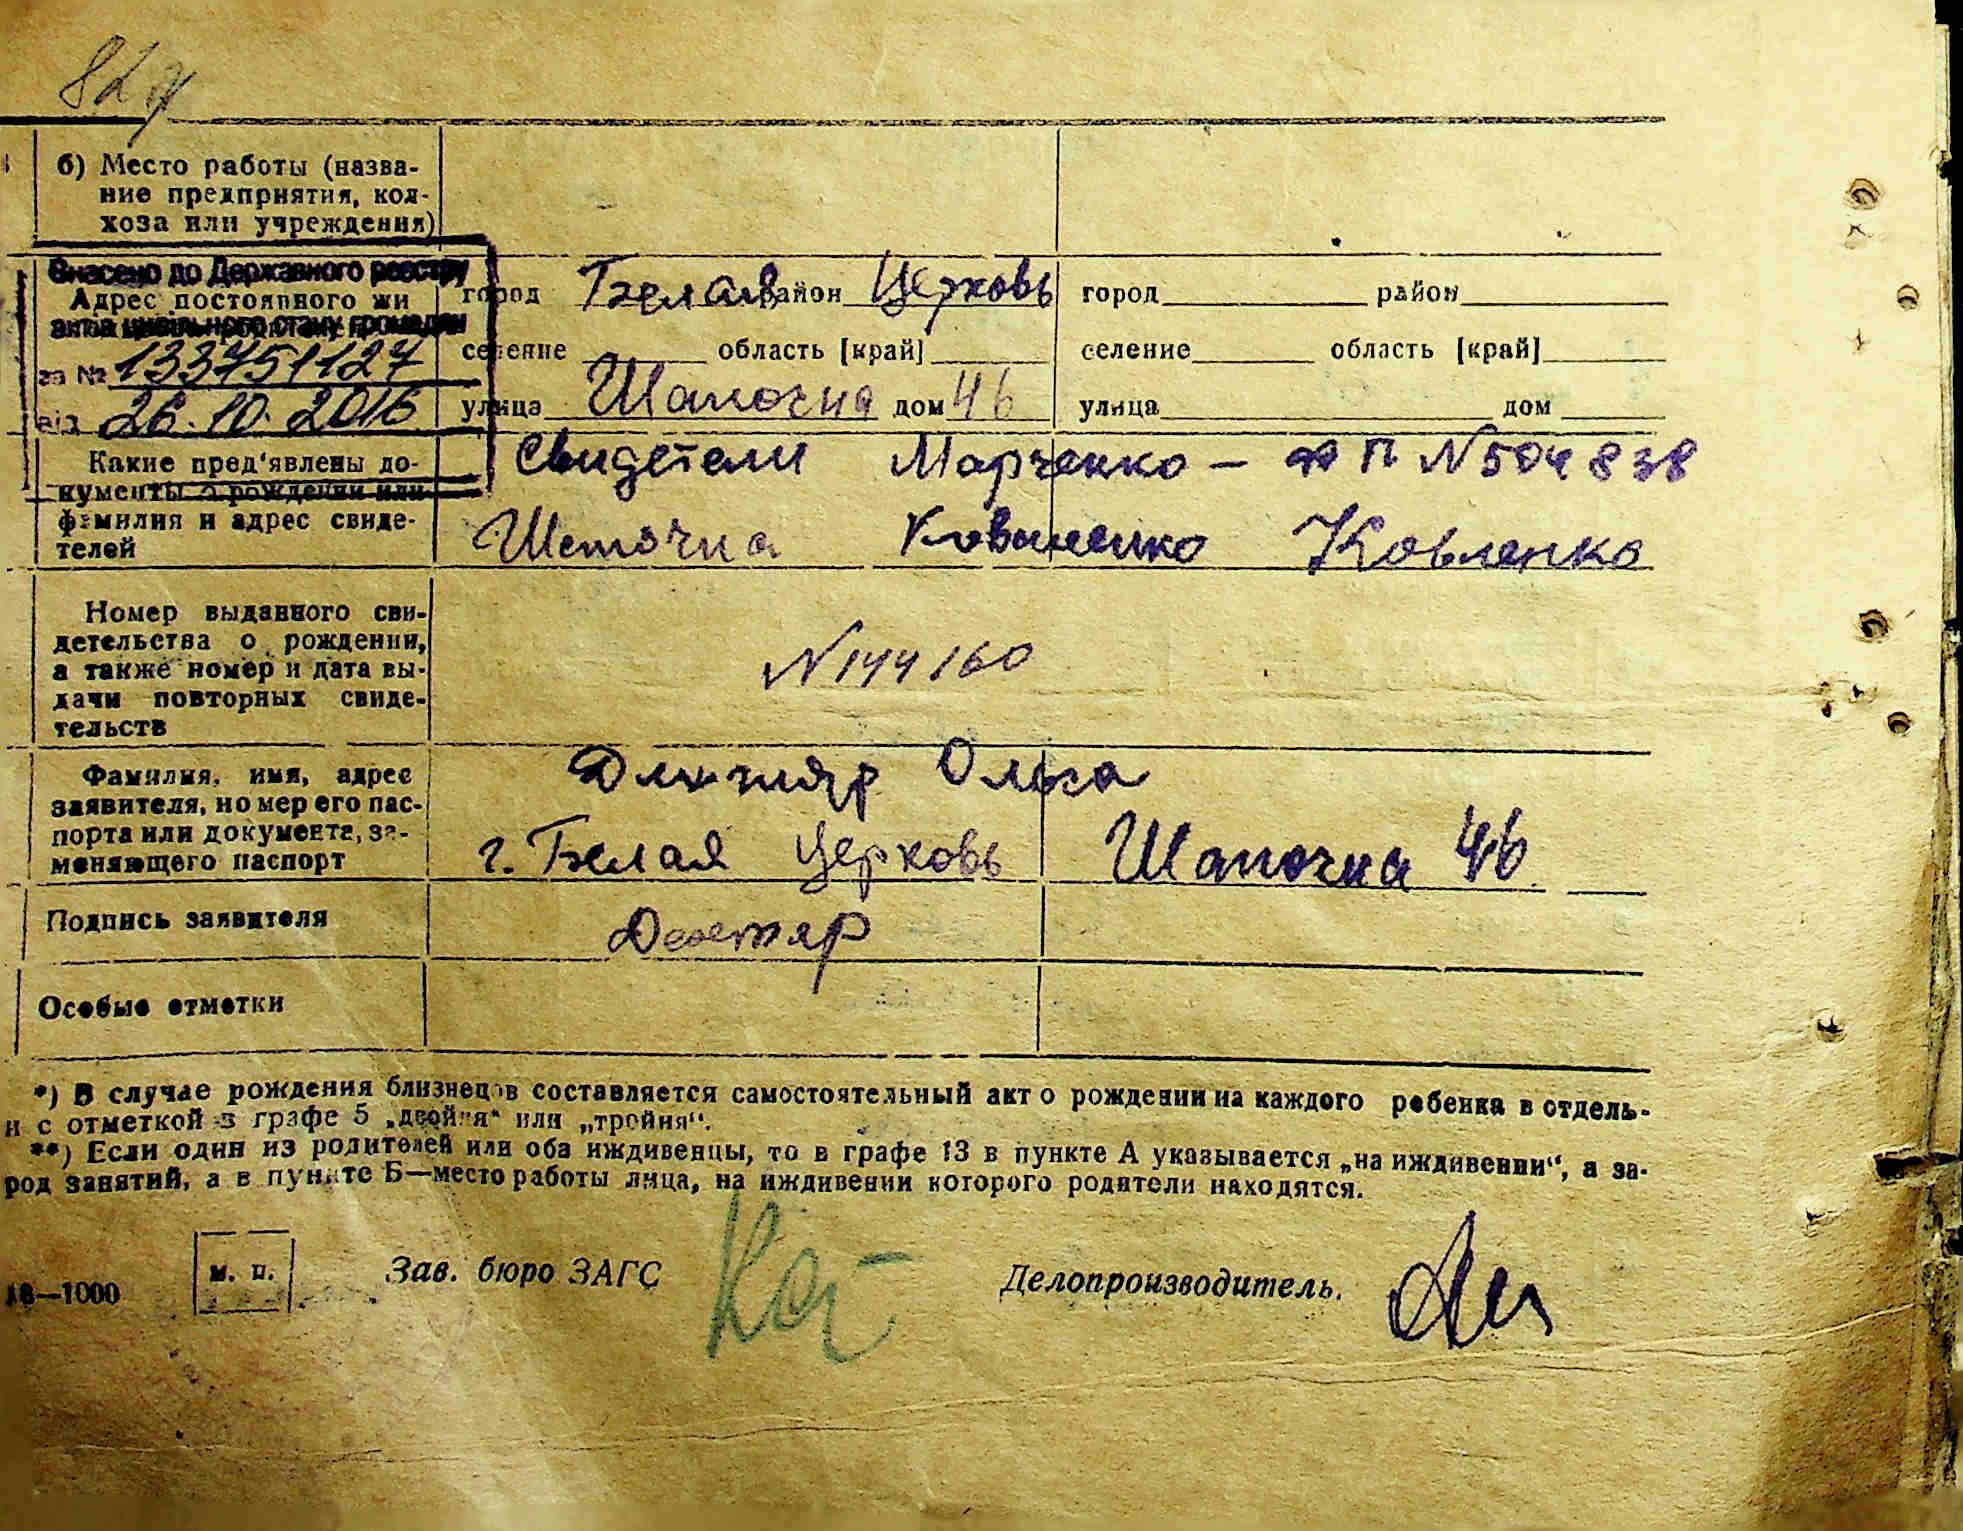 б) Место работы (назва-
ние предприятия, кол-
хоза или учреждения)
Внесено до Державного реєстру
Адрес постоянного жи
актів цивільного стану громадян
за № 133751127
від 26.10.2016
город Белая район Церковь город район
селение область [край] селение область [край]
улица Шапочна дом 46 улица дом
Какие пред'явлены до-
кументы о рождении или
фамилия и адрес свиде-
телей
Свидетели Марченко – П N504838
Коваленко
Номер выданного сви-
детельства о рождении,
а также номер и дата вы-
дачи повторных свиде-
тельств
N144160
Фамилия, имя, адрес
заявителя, номер его пас-
порта или документа, за-
меняющего паспорт
Ольга
г. Белая Церковь Шапочна 46
Подпись заявителя
Особые отметки
*) В случае рождения близнецов составляется самостоятельный акт о рождении на каждого ребенка в отдель-
и с отметкой в графе 5 „двойня“ или „тройня“.
**) Если один из родителей или оба иждивенцы, то в графе 13 в пункте А указывается „на иждивении“, а за-
род занятий, а в пункте Б—место работы лица, на иждивении которого родители находятся.
м. п. Зав. бюро ЗАГС Делопроизводитель.
—1000